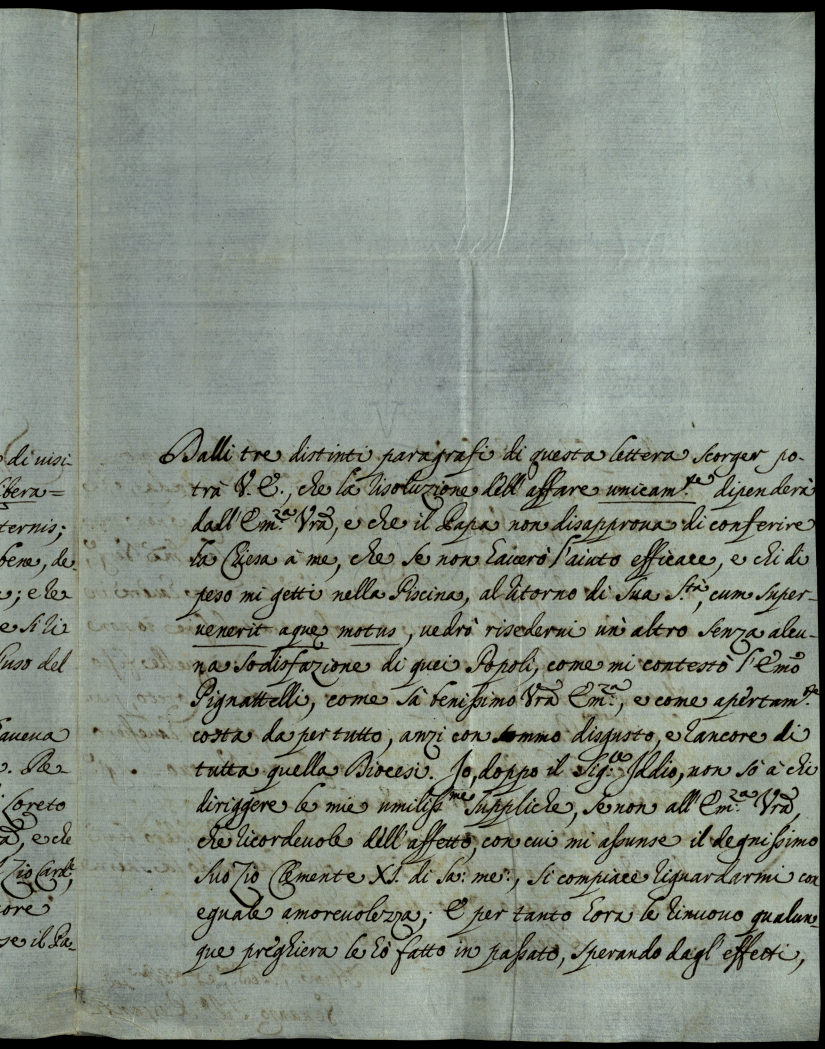 di visi-
bera=
ternis;
bene, de-
; e che
e si li
luso del
aveva
. Re-
Loreto
, e che
Zio Card.e
ore
se il Pa-
Dalli tre distinti paragrafi di questa lettera scorger po-
trà V. E., che la risoluzione dell'affare unicam.te dipenderà
dall'Em.za Vrã, e che il Papa non disapprova di conferire
la Chiesa à me, che se non haverò l'aiuto efficace, e chi di
peso mi getti nella Piscina, al ritorno di Sua S.tà, cum super-
venerit aque motus, vedrò risedervi un'altro senza alcu-
na sodisfazione di quei Popoli, come mi contestò l'Emo
Pignattelli, come sà benissimo Vrã Em.za, e come apertam.te
costa da per tutto, anzi con sommo disgusto, e rancore di
tutta quella Diocesi. Io, doppo il Sig.re Iddio, non sò à chi
diriggere le mie umiliss.me suppliche, se non all'Em.za Vrã,
che ricordevole dell'affetto, con cui mi assunse il degnissimo
suo Zio Clemente XI. di Sa: me:, si compiace riguardarmi con
eguale amorevolezza; E per tanto hora le rinuovo qualun-
que preghiera le hò fatto in passato, sperando dagl'effetti,